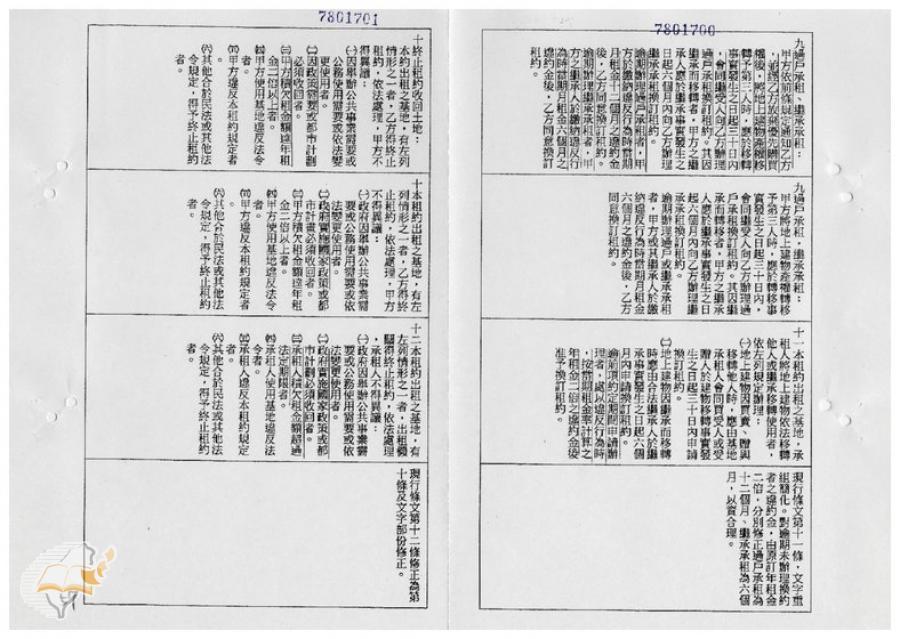 7801700
九過戶承租、繼承承租：
甲方依前條規定通知乙方
，並經乙方放棄優先購買
權後，將地上建物產權移
轉予第三人時，應於移轉
事實發生之日起三十日內
，會同繼受人向乙方辦理
過戶承租換訂租約。其因
繼承而移轉者，甲方之繼
承人應於繼承事實發生之
日起六個月內向乙方辦理
繼承承租換訂租約。
逾期辦理過戶承租者，甲
方於繳納違反行為時當期
月租金十二個月之違約金
後，乙方同意換訂租約。
逾期辦理繼承承租者，甲
方之繼承人於繳納違反行
為時當期月租金六個月之
違約金後，乙方同意換訂
租約。
九過戶承租，繼承承租：
甲方將地上建物產權轉移
予第三人時，應於轉移事
實發生之日起三十日內，
會同繼受人向乙方辦理過
戶承租換訂租約。其因繼
承而轉移者，甲方之繼承
人應於繼承事實發生之日
起六個月內向乙方辦理繼
承承租換訂租約。
逾期辦理過戶或繼承承租
者，甲方或其繼承人於繳
納違反行為時當期月租金
六個月之違約金後，乙方
同意換訂租約。
十一本租約出租之基地，承
租人將地上建物依法移轉
他人或繼承移轉使用者，
依左列規定辦理：
㈠地上建物因買賣、贈與
移轉他人時，應由基地
承租人會同買受人或受
贈人於建物移轉事實發
生之日起三十日內申請
換訂租約。
㈡地上建物因繼承而移轉
時應由合法繼承人於繼
承事實發生之日起六個
月內申請換訂租約。
逾前項約定期間申請辦
理者，處以違反行為時
，按當期租金率計算之
年租金二倍之違約金後
准予換訂租約。
現行條文第十一條，文字重
組簡化。對逾期未辦理換約
者之違約金，由原訂年租金
二倍，分別修正過戶承租為
十二個月、繼承承租為六個
月，以資合理。
7801701
十終止租約收回土地：
本租約出租之基地，有左列
情形之一者，乙方得終止
租約，依法處理，甲方不
得異議：
㈠因舉辦公共事業需要或
公務使用需要或依法變
更使用者。
㈡因政策需要或都市計劃
必須收回者。
㈢甲方積欠租金額達年租
金二倍以上者。
㈣甲方使用基地違反法令
者。
㈤甲方違反本租約規定者
。
㈥其他合於民法或其他法
令規定，得予終止租約
者。
十本租約出租之基地，有左
列情形之一者，乙方得終
止租約，依法處理，甲方
不得異議：
㈠政府因舉辦公共事業需
要或公務使用需要或依
法變更使用者。
㈡政府實施國家政策或都
市計畫必須收回者。
㈢甲方積欠租金額達年租
金二倍以上者。
㈣甲方使用基地違反法令
者。
㈤甲方違反本租約規定者
。
㈥其他合於民法或其他法
令規定，得予終止租約
者。
十二本租約出租之基地，有
左列情形之一者，出租機
關得終止租約，依法處理
，承租人不得異議：
㈠政府因舉辦公共事業需
要或公務使用需要或依
法變更使用者。
㈡政府實施國家政策或都
市計劃必須收回者。
㈢承租人積欠租金額超過
法定期限者。
㈣承租人使用基地違反法
令者。
㈤承租人違反本租約規定
者。
㈥其他合於民法或其他法
令規定，得予終止租約
者。
現行條文第十二條修正為第
十條及文字部份修正。